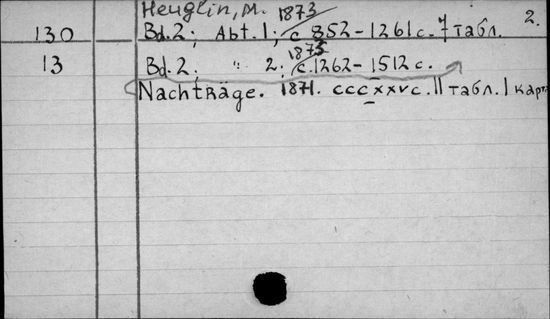 Heuglin, M. 1873 2.
130 Bd. 2; Abt. 1; с 852-1261 с. 7 табл.
1873
13 Bd. 2; " 2; с. 1262-1512 с.
Nachträge. 1871. cccxxvc. 11 табл. 1 карт